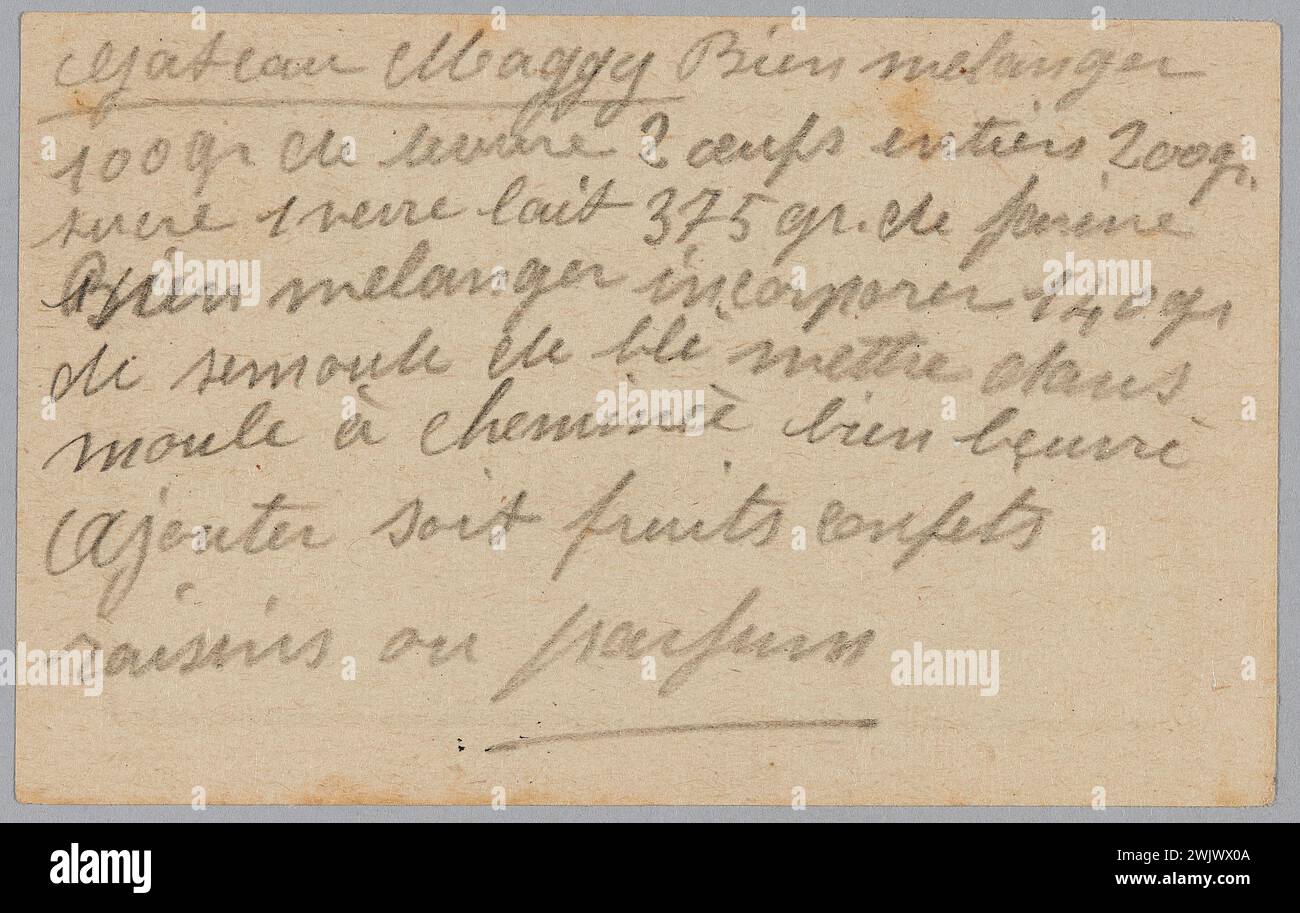 Gateau Maggy Bien melanger
100gr de beurre 2 œufs entiers 200gr.
sucre 1 verre lait 375 gr. de farine
Bien melanger incorporer 140gr
de semoule de blé mettre dans
moule à cheminée bien beurré
Ajouter soit fruits confits
raisins ou parfum
alamy
Image ID: 2WJWX0A
www.alamy.com